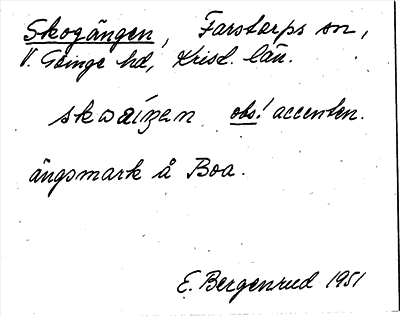 Skogängen, Farstorps sn,
V. Göinge hd, Krist. län.
skwaíŋen obs! accenten.
ängsmark å Boa.
E. Bergenrud 1951